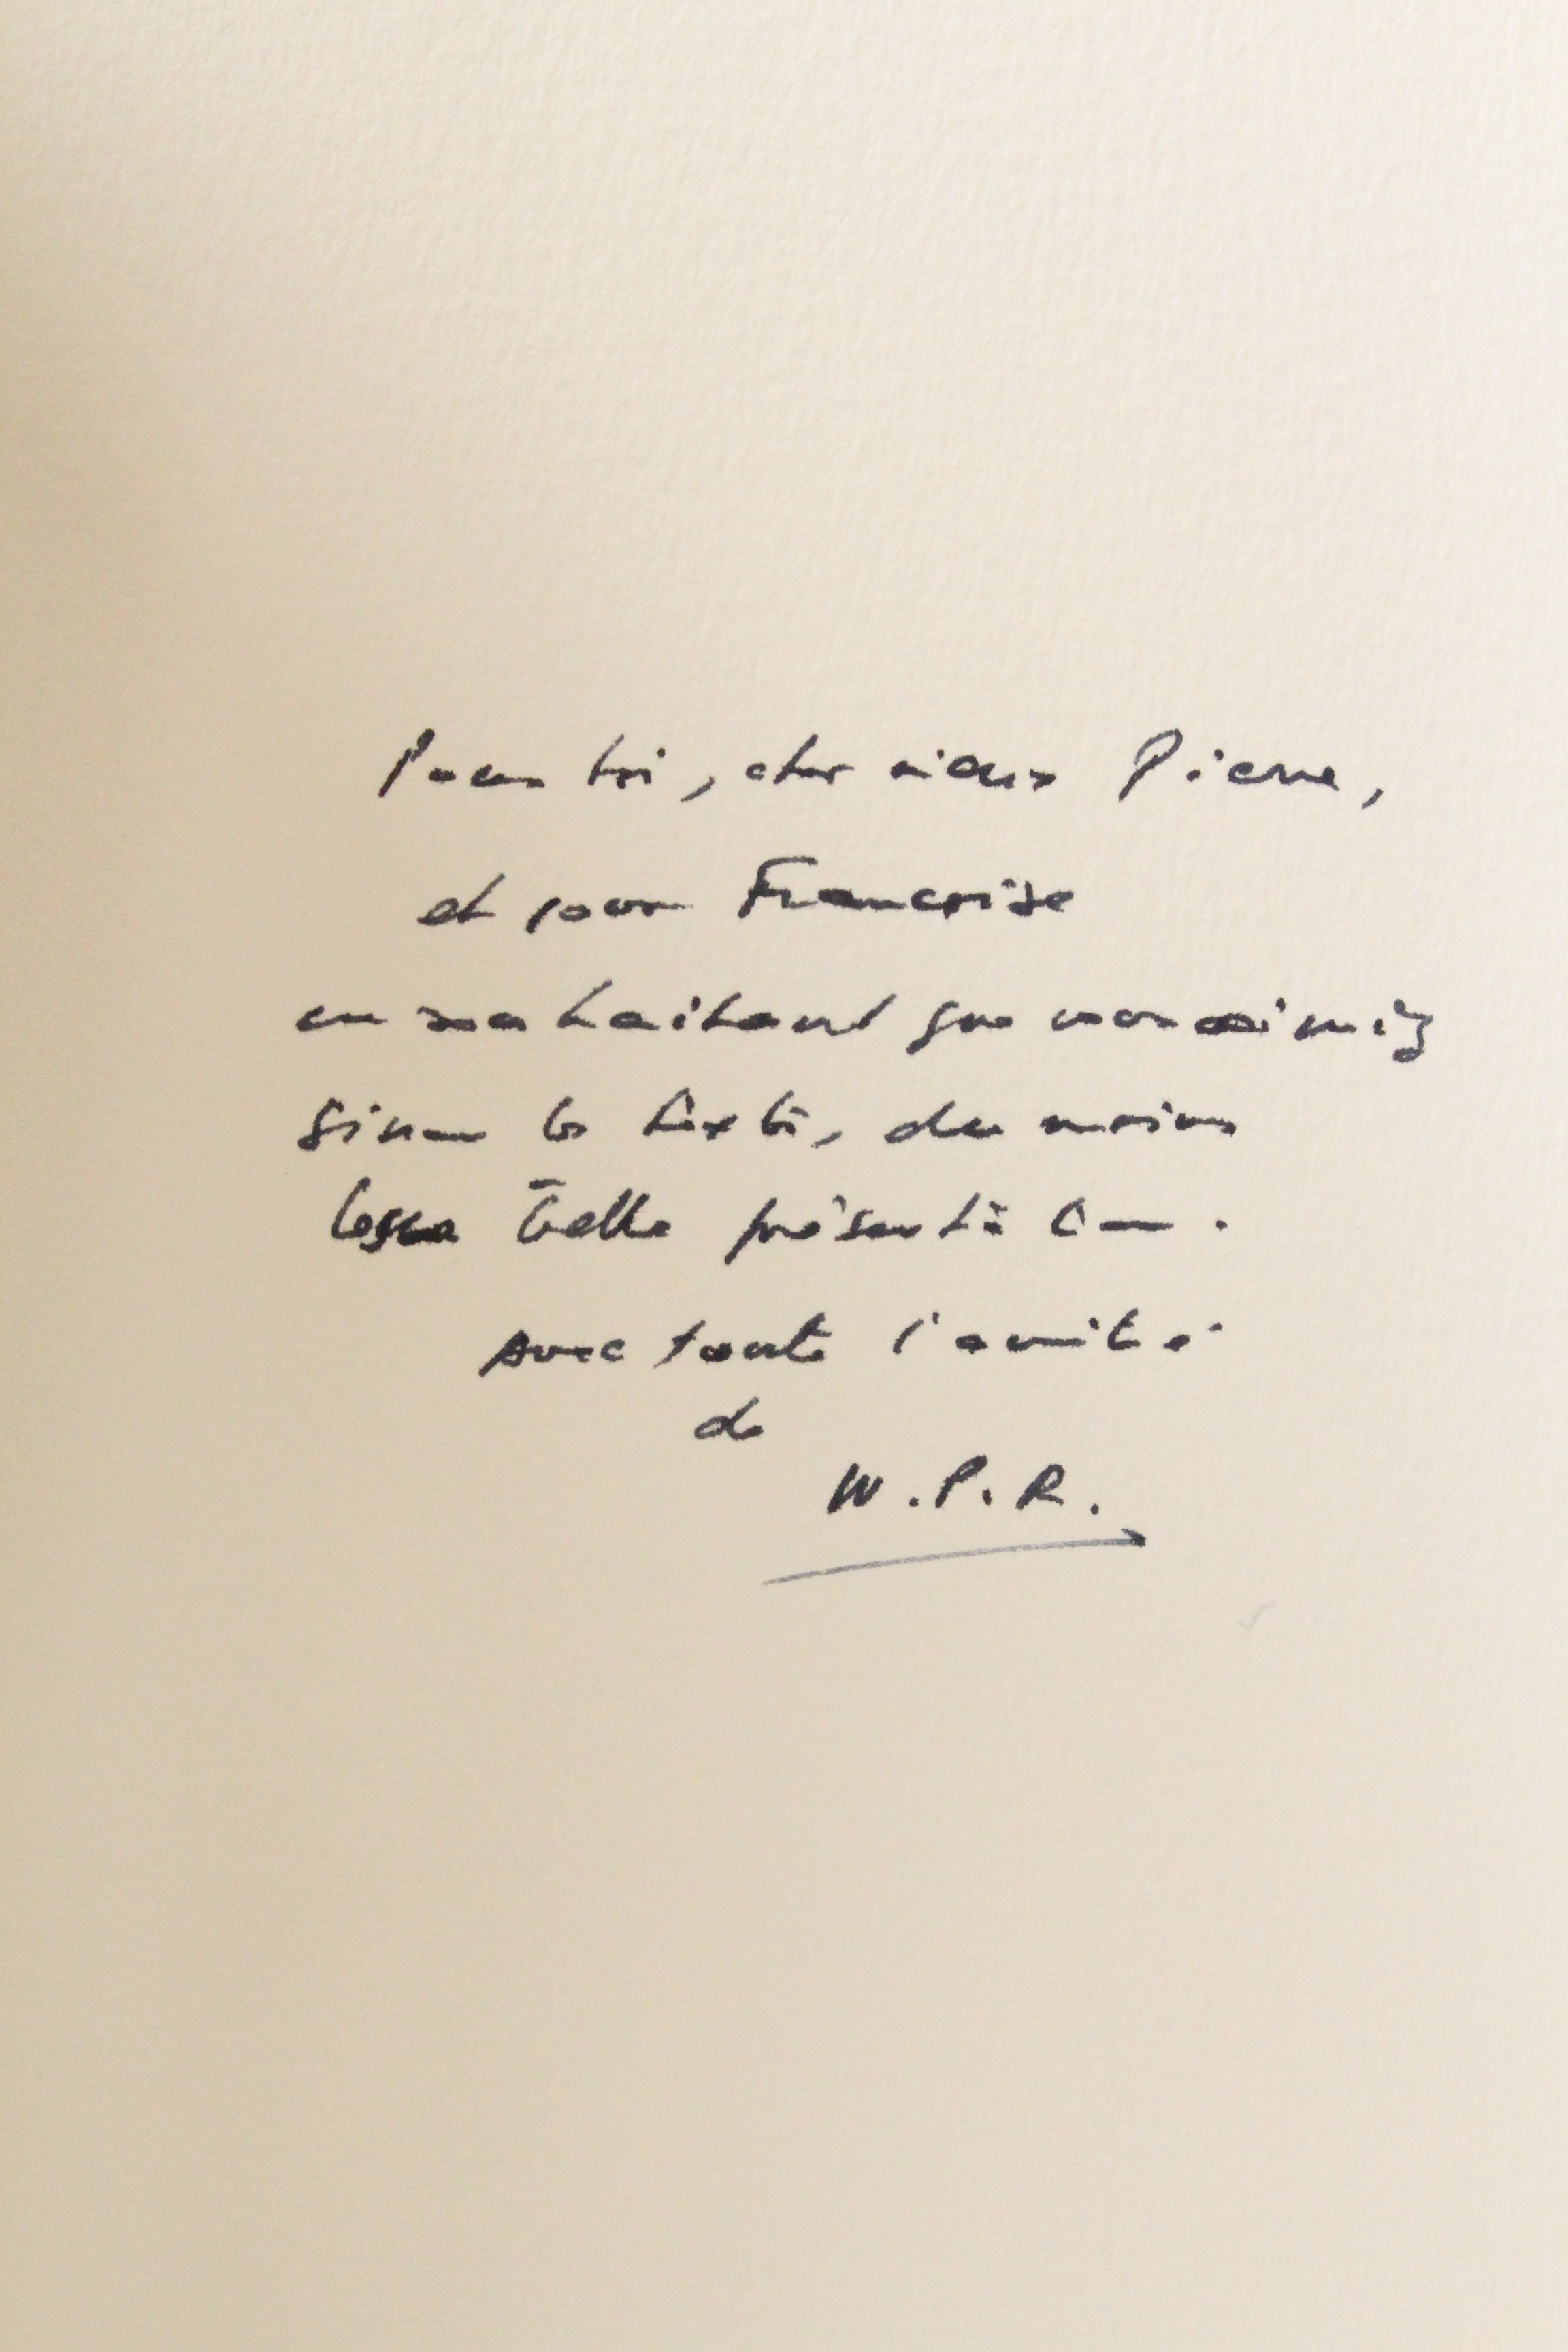 Pour toi, cher vieux Pierre,
et pour Françoise
en souhaitant que vous aimiez
sinon le texte, du moins
sa belle présentation.
Avec toute l'amitié
de
W.P.R.